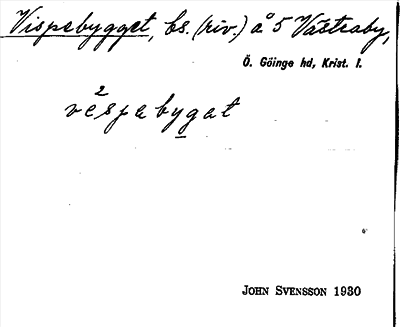 Vispebygget, bs. (riv.) å 5 Västraby,
Ö. Göinge hd, Krist. l.
2
vespabygat
JOHN SVENSSON 1930